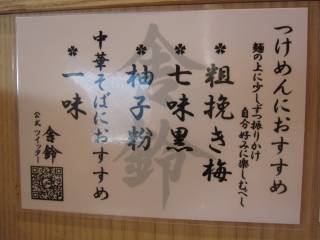 つけめんにおすすめ
麺の上に少しずつ振りかけ
自分好みに楽しむべし
*粗挽き梅
*七味黒
*柚子粉
中華そばにおすすめ
*一味
公式ツイッター
舎鈴
舎鈴